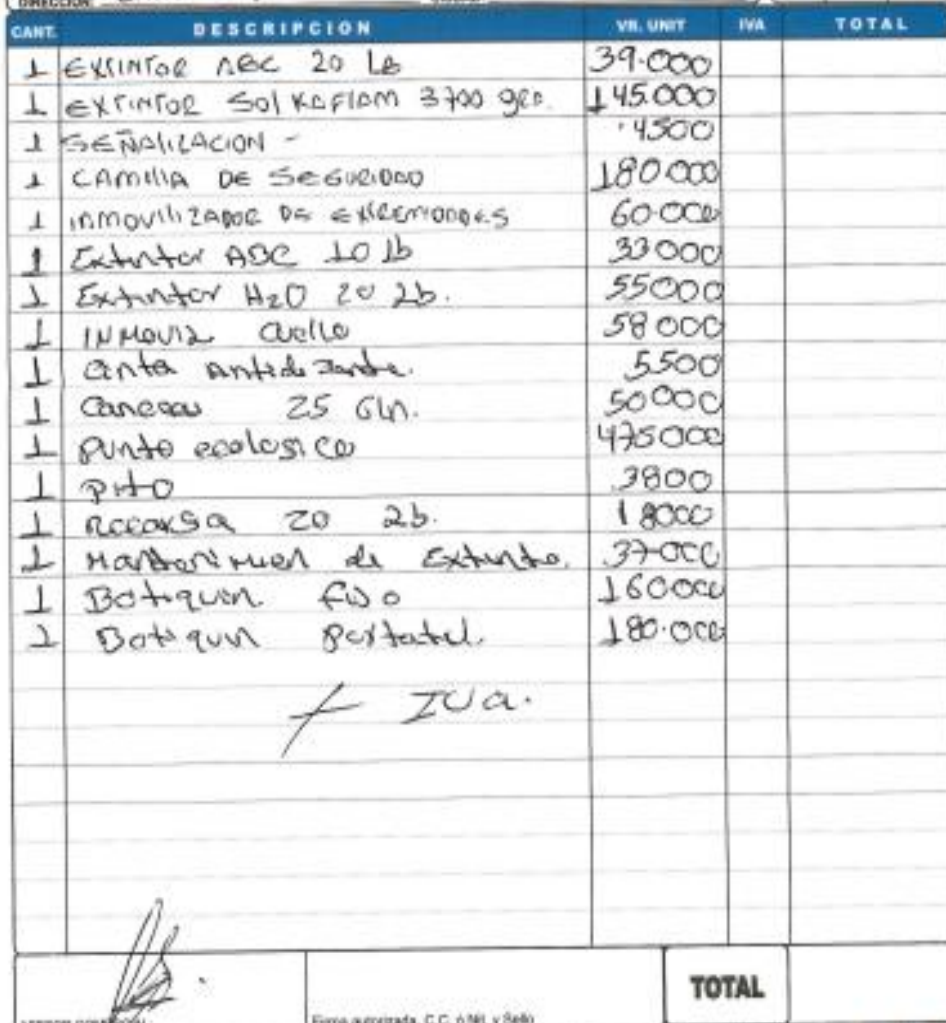 DIRECCIÓN:
CANT. DESCRIPCION VR. UNIT IVA TOTAL
1 EXTINTOR ABC 20 Lb 39.000
1 EXTINTOR SolKAFlAM 3700 gro. 145.000
1 SEÑALIZACION - 4500
1 CAMILLA DE SEGURIDAD 180 000
1 INMOVILIZADOR DE EXTREMIDADES 60.000
1 Extintor ABC 10 lb 33 000
1 Extintor H2O 20 Lb. 55000
1 INMOVIZ Cuello 58 000
1 Cinta Antideslizante. 5.500
1 Canecas 25 Gln. 50000
1 Punto ecologico 475000
1 PitO 3800
1 Recarga 20 Lb. 18000
1 Mantenimien de Extinto. 37000
1 Botiquin fijo 160000
1 Botiquin Portatil. 180.000
+ IVa.
TOTAL
Firma autorizada, C.C. ó Nit. y Sello